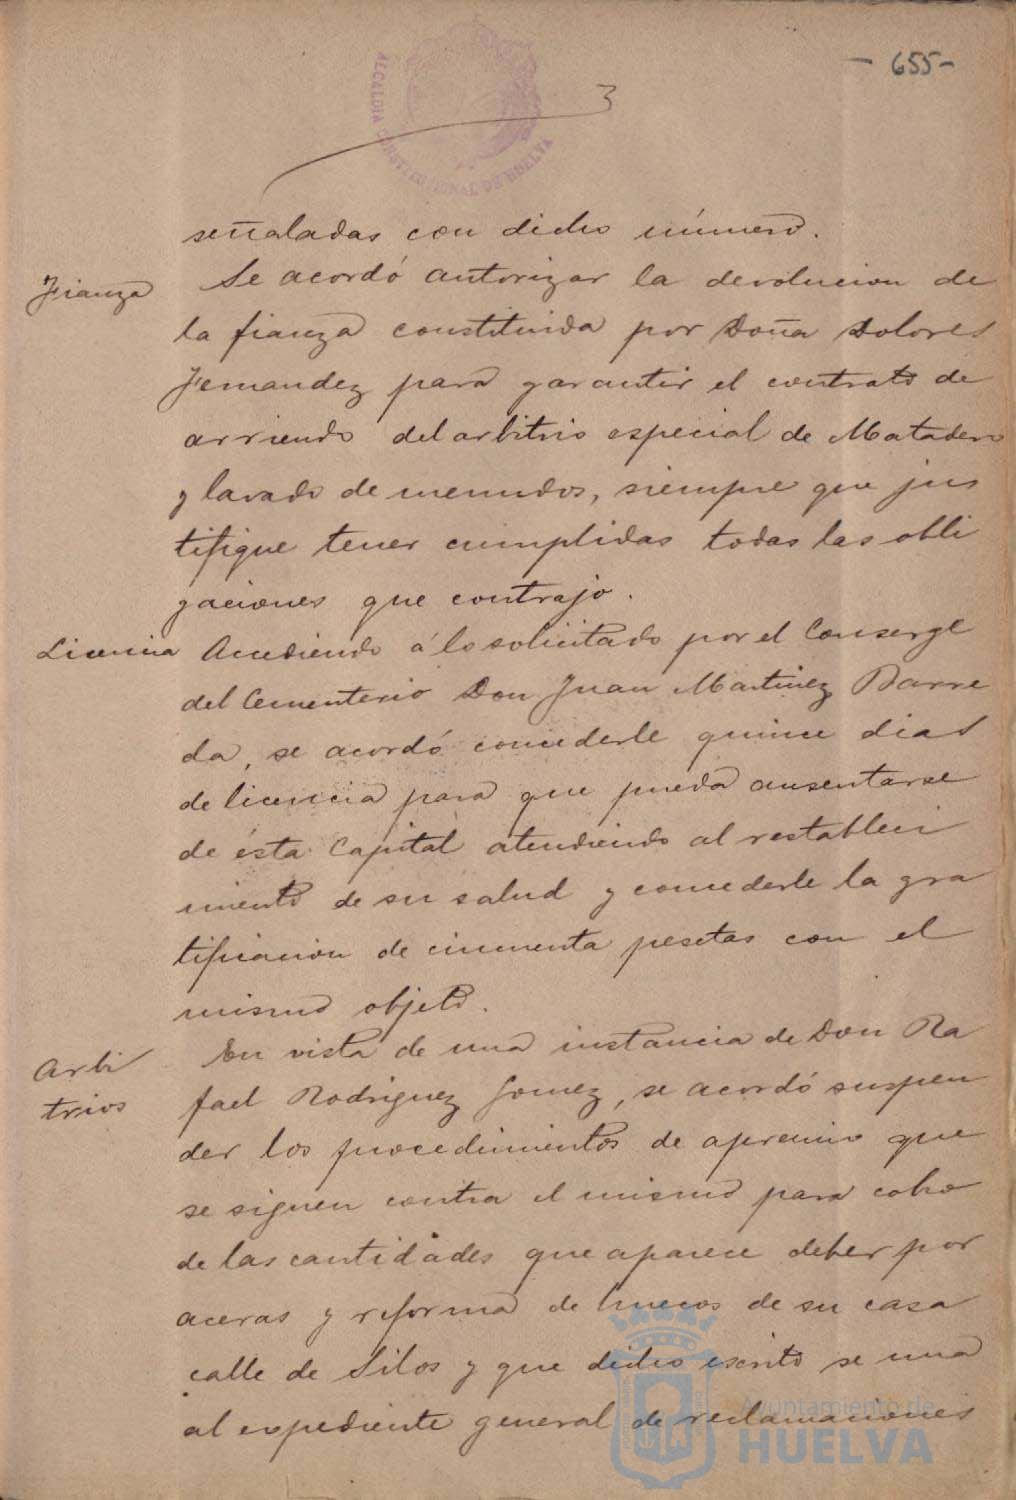 - 655 -
3
ALCALDIA CONSTITUCIONAL DE HUELVA
señaladas con dicho número.
Fianza Se acordó autorizar la devolucion de
la fianza constituida por Doña Dolores
Fernandez para garantir el contrato de
arriendo del arbitrio especial de Matadero
y lavado de menudos, siempre que jus
tifique tener cumplidas todas las obli
gaciones que contrajo.
Licencia Accediendo á lo solicitado por el Conserge
del Cementerio Don Juan Martinez Barre
da, se acordó concederle quince dias
de licencia para que pueda ausentarse
de ésta Capital atendiendo al restableci
miento de su salud y concederle la gra
tificacion de cincuenta pesetas con el
mismo objeto.
Arbi En vista de una instancia de Don Ra
trios fael Rodriguez Gomez, se acordó suspen
der los procedimientos de apremio que
se siguen contra el mismo para cobro
de las cantidades que aparece deber por
aceras y reforma de huecos de su casa
calle de Silos y que dicho escrito se una
al expediente general de reclamaciones
Ayuntamiento de
HUELVA